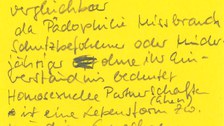 vergleichbar
da Pädophilie Missbrauch
Schutzbefohlener oder Minder
jähriger ohne ihr Ein-
verständnis bedeutet
Homosexuelle Partnerschaften
ist eine Lebensform